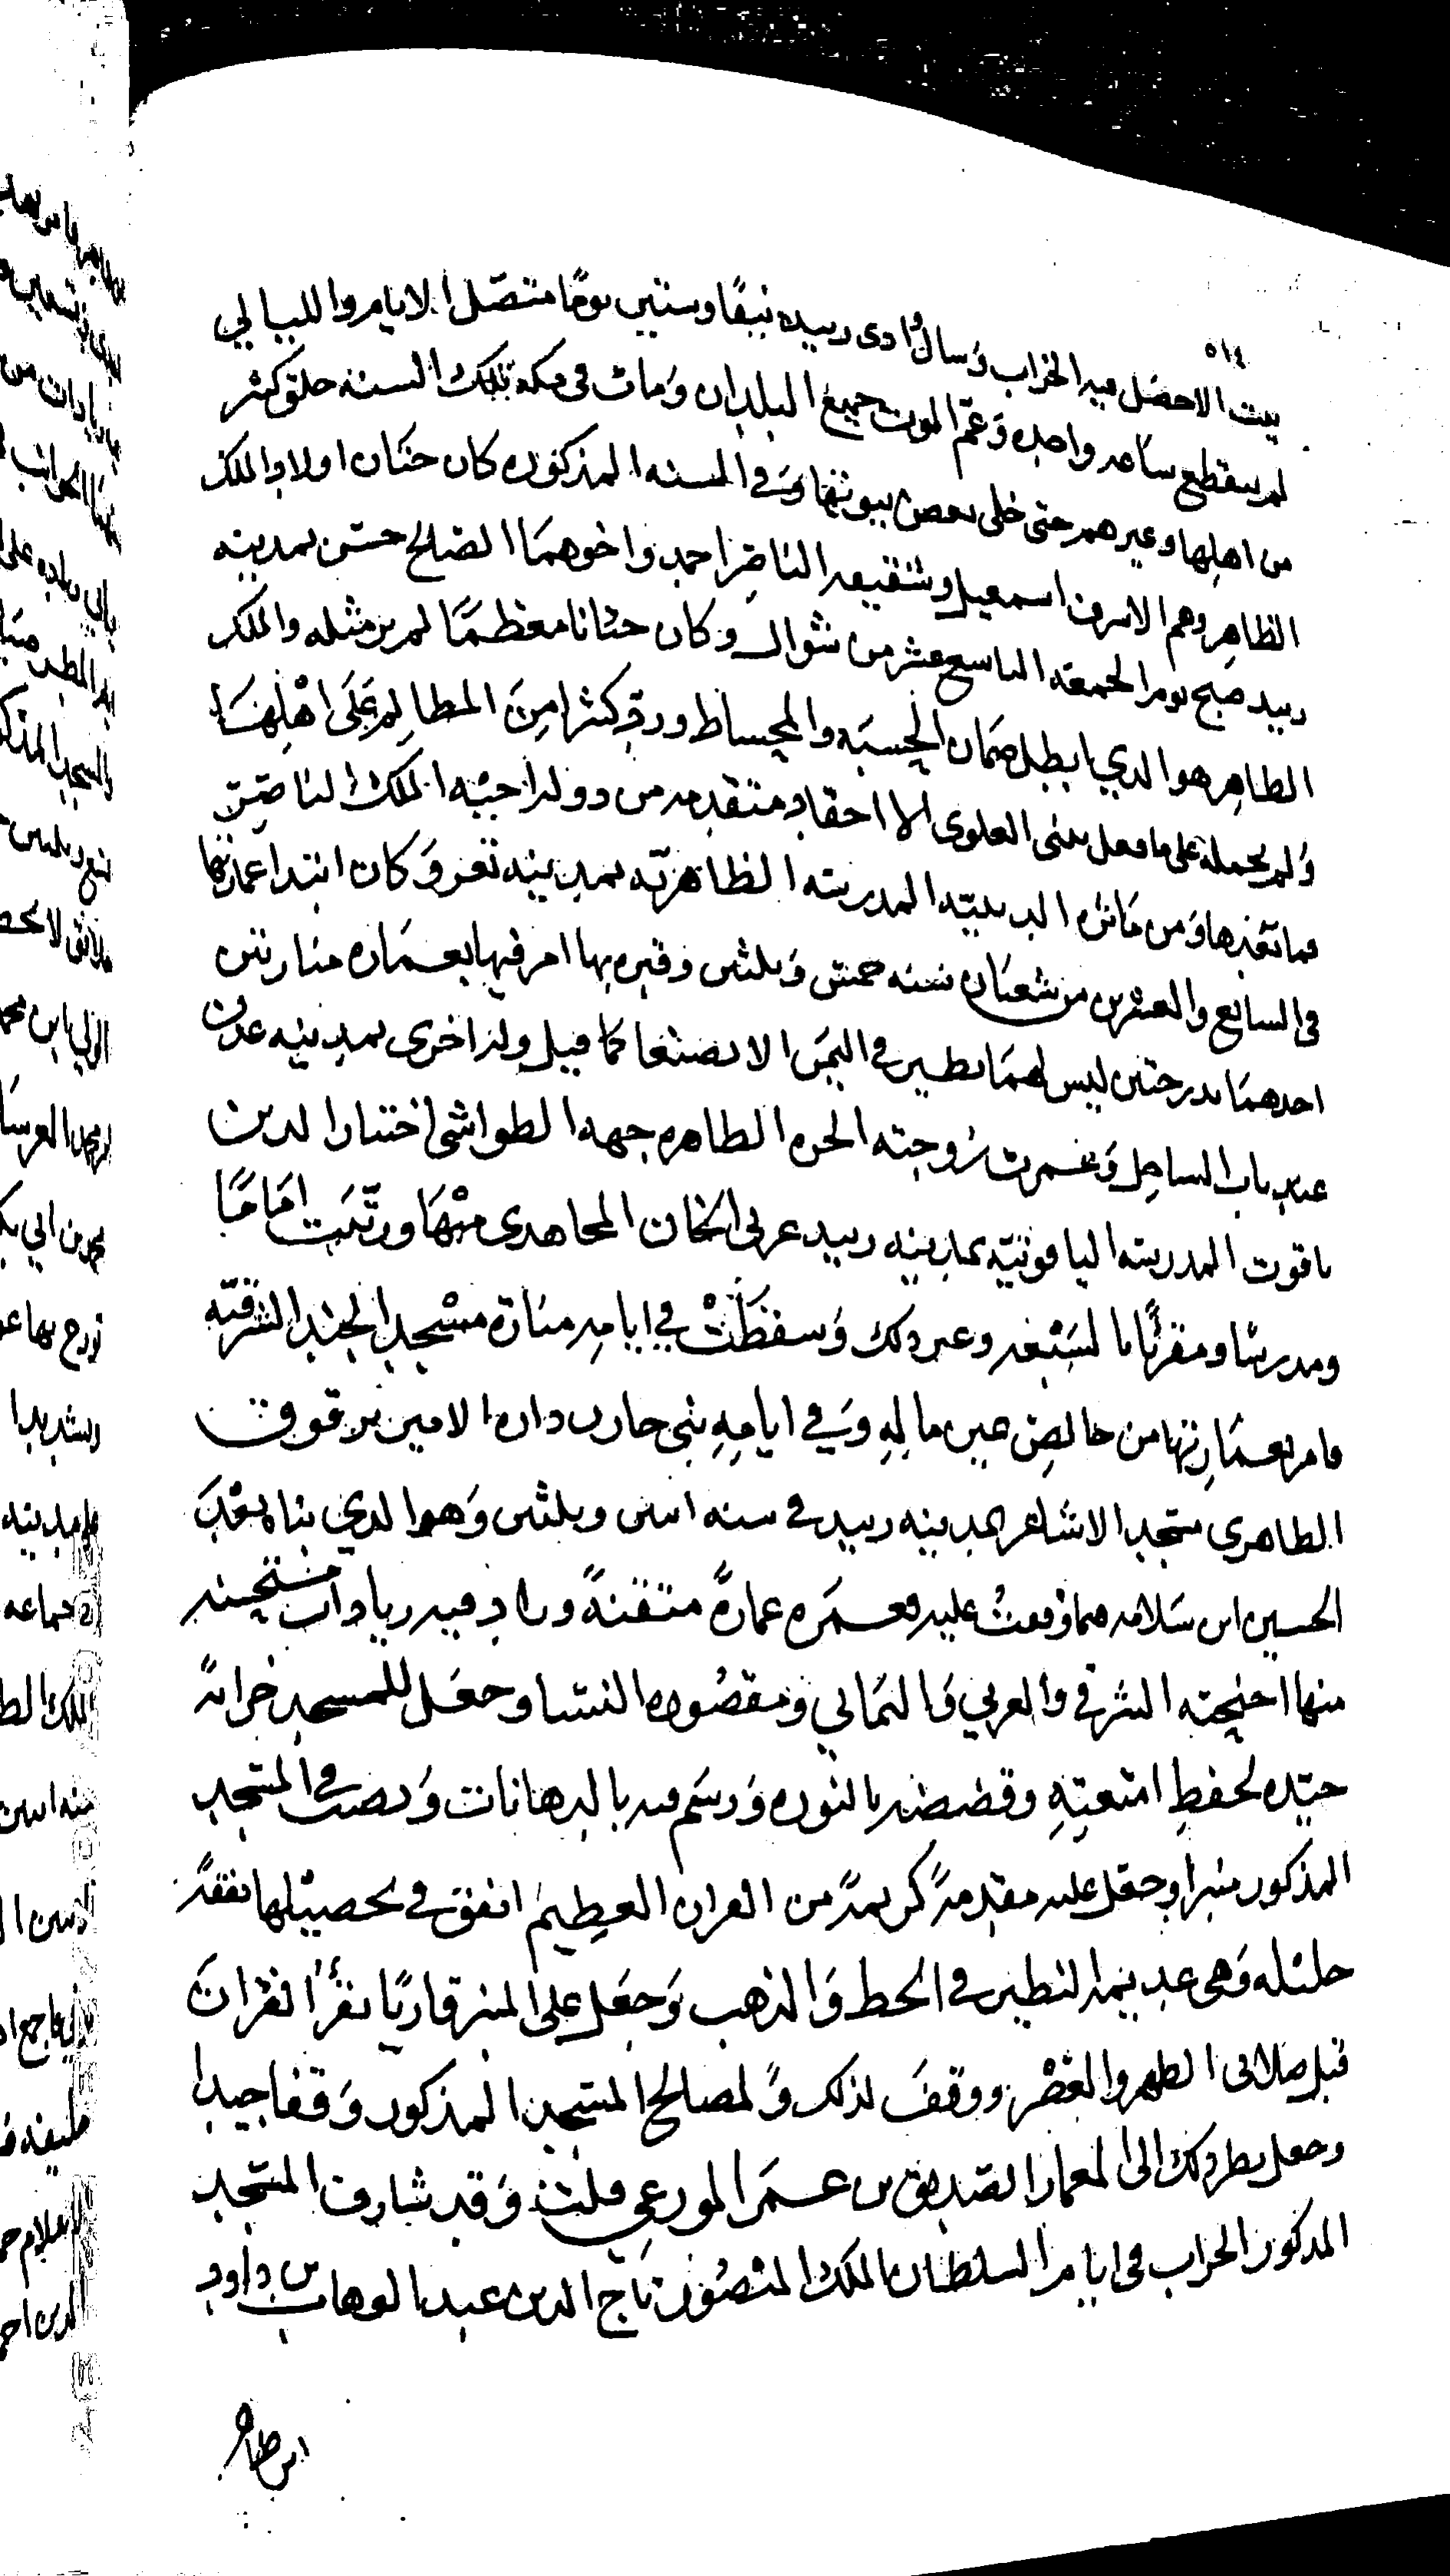 ٥١٤
بيت الا حصل فيه الخراب وسال وادى زبيد نيفا وستين يوما متصل الايام والليالي
لم ينقطع ساعه واحده وعم الموت جميع البلدان ومات في مكه تلك السنه خلق كثير
من اهلها وغيرهم حتى خلى بعض بيوتها وفي السنه المذكوره كان ختان اولاد الملك
الظاهر وهم الاشرف اسمعيل وشقيقه الناصر احمد واخوهما الصالح حسن بمدينه
زبيد صبح يوم الجمعه التاسع عشر من شوال وكان ختانا معظما لم ير مثله والملك
الظاهر هو الذي ابطل ضمان الحسبه والمجساط ورفع كثيرا من المظالم على اهلها
ولم يحمله على ما فعل ببنى العلوى الا احقاد متقدمه من دولة اخيه الملك الناصر
فما بعدها ومن مآثره الدينيه المدرسه الظاهريه بمدينه تعز وكان ابتدا عمارتها
في السابع والعشرين من شعبان سنه خمس وثلثين وقبره بها امر فيها بعماره منارتين
احدهما بدرجتين ليس لهما نظير في اليمن الا بصنعا كما قيل وله اخرى بمدينه عدن
عند باب الساحل وعمرت زوجته الحره الطاهره جهه الطواشى اختيار الدين
ياقوت المدرسه الياقوتيه بمدينه زبيد غربى الخان المجاهدى منها ورتبت اماما
ومدرسا ومقرئا بالسبعه وغير ذلك وسقطت في ايامه منارة مسجد الجند الشرقيه
فامر بعمارتها من خالص عين ماله وفي ايامه بنى خازن داره الامير برقوق
الظاهرى مسجد الاشاعر بمدينه زبيد في سنه اثنين وثلثين وهو الذي بناه بعد
الحسين ابن سلامه فما وقعت عليه فعمره عمارة متقنة وزاد فيه زيادات مستحسنه
منها اجنحته الشرقي والغربي واليماني ومقصوره النسا وجعل للمسجد خزانة
جيده لحفظ امتعته وقضضه بالنوره ورسم فيه بالدهانات ونصب في المسجد
المذكور منبرا وجعل عليه مقدمة كريمة من القران العظيم انفق في تحصيلها نفقة
جليله وهى عديمه النظير في الخط والذهب وجعل على المنبر قاريا يقرأ القران
قبل صلاتى الظهر والعصر ووقف لذلك ولمصالح المسجد المذكور وقفا جيدا
وجعل نظر ذلك الى المعمار الصديق بن عمر الموزعي قلت وقد شارف المسجد
المذكور الخراب في ايام السلطان الملك المنصور تاج الدين عبد الوهاب بن داود
ابن طاهر